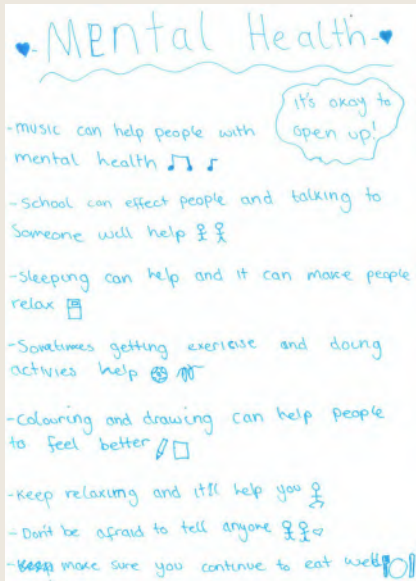 Mental Health
It's okay to
open up!
-music can help people with
mental health
-School can effect people and talking to
Someone will help
-Sleeping can help and it can make people
relax
-Sometimes getting exericise and doing
activies help
-Colouring and drawing can help people
to feel better
-Keep relaxing and it'll help you
-Don't be afraid to tell anyone
-Keep make sure you continue to eat well